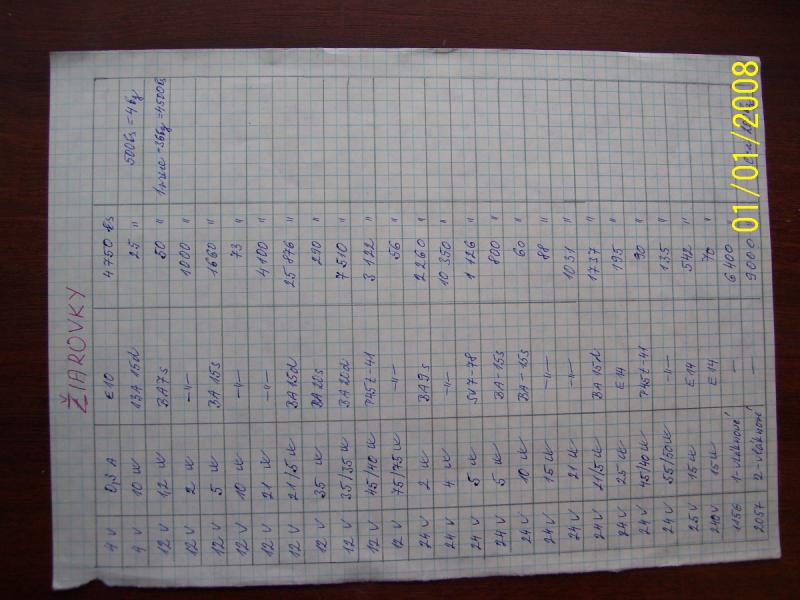 ŽIAROVKY
4 V 0,3 A E10 4750 ks
4 V 10 W BA 15d 25 " 500ks = 4kg
12 V 1,2 W BA7s 50 "
12 V 2 W —"— 1000 "
12 V 5 W BA 15s 1660 "
12 V 10 W —"— 73 "
12 V 21 W —"— 4100 "
12 V 21/5 W BA 15d 25 876 "
12 V 35 W BA 20s 290 "
12 V 35/35 W BA 20d 7510 "
12 V 45/40 W P45t-41 3 122 "
12 V 75/75 W —"— 56 "
24 V 2 W BA9s 2 260 "
24 V 4 W —"— 10 350 "
24 V 5 W SV7-78 1 126 "
24 V 5 W BA-15s 800 "
24 V 10 W BA-15s 60 "
24 V 15 W —"— 88 "
24 V 21 W —"— 1031 "
24 V 21/5 W BA 15d 1737 "
24 V 25 W E14 195 "
24 V 45/40 W P45t-41 90 "
24 V 55/50 W —"— 135 "
25 V 15 W E14 542 "
240V 15 W E14 70 "
1156 1-vláknové — 6400 "
2057 2-vláknové — 9000 "
01/01/2008